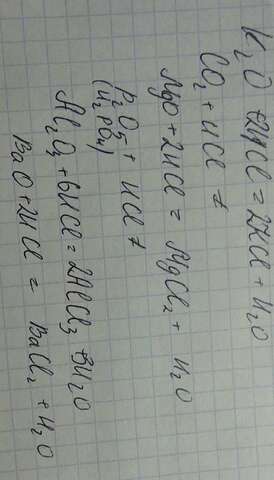 K₂O + 2HCl = 2KCl + H₂O
CO₂ + HCl ≠
MgO + 2HCl = MgCl₂ + H₂O
P₂O₅ + HCl ≠
(H₂PO₄)
Al₂O₃ + 6HCl = 2AlCl₃ + 3H₂O
BaO + 2HCl = BaCl₂ + H₂O